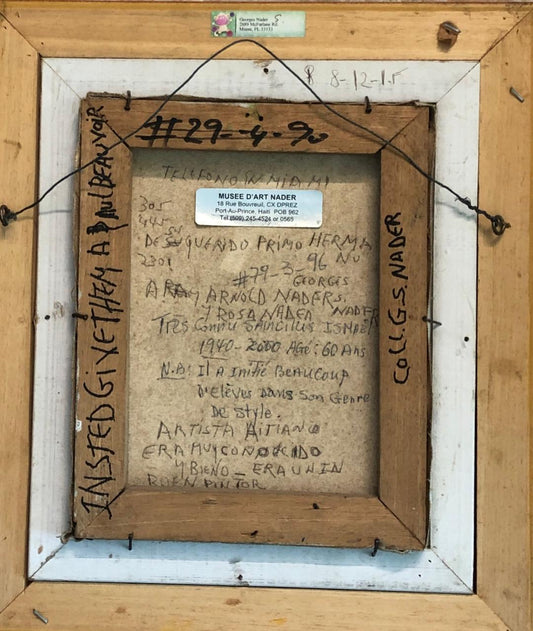 Georges Nader 5
2689 McFarlane Rd.
Miami, FL 33133
8-12-15
#29-4-90
TELEFONO IN MIAMI
MUSEE D'ART NADER
18 Rue Bouvreuil, CX DPREZ
Port-Au-Prince, Haiti POB 962
Tel (509) 245-4524 or 0565
305
445
DE SU QUERIDO PRIMO HERMANO
2301
#79-3-96
GEORGES
NADER
A RAY ARNOLD NADERS.
Y ROSA NADER
TRÈS Connu SAINCILUS ISMAEL
1940-2000 AGÉ: 60 Ans
N.B: Il A Initié BEAUCOUP
D'Elèves Dans Son Genre
De Style.
ARTISTA AITIANO
ERA MUY CONOCIDO
Y BIENO_ ERA UN
BUEN PINTOR
INSTED GIVE THEM A PAUL BEAUVOIR
Coll. G.S. NADER